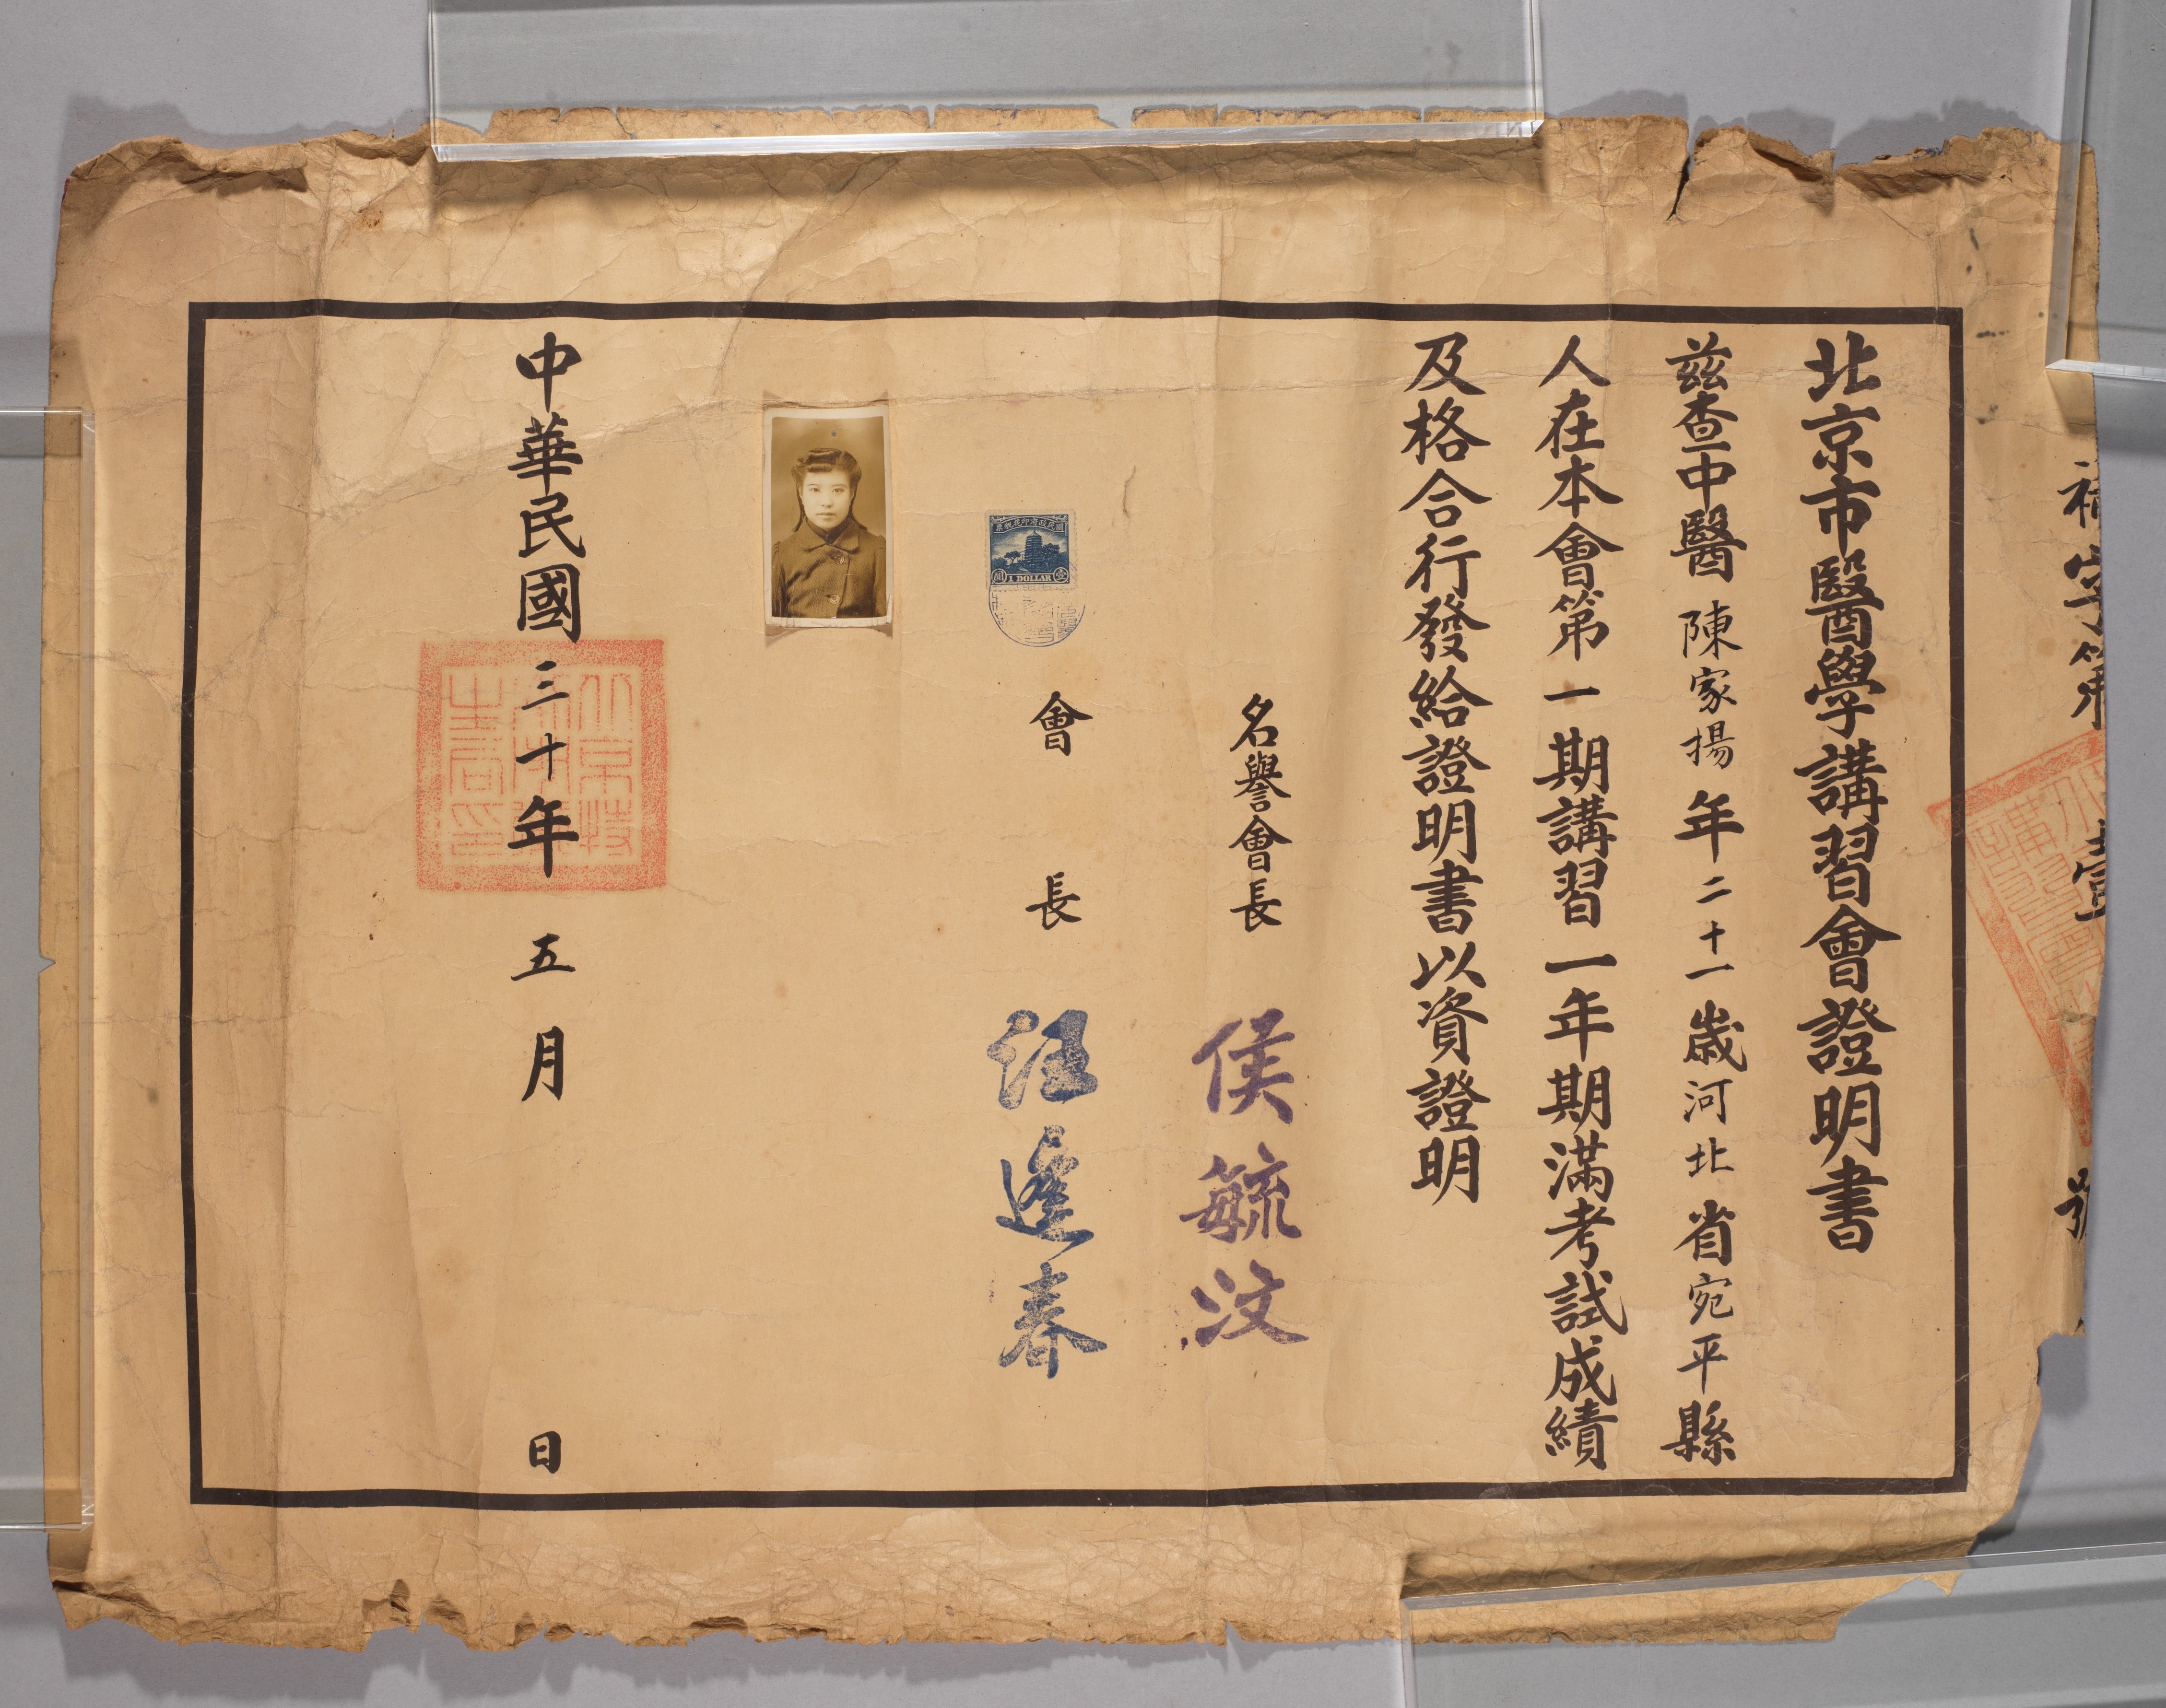 字第壹號
北京市醫學講習會證明書
茲查中醫陳家揚年二十一歲河北省宛平縣
人在本會第一期講習一年期滿考試成績
及格合行發給證明書以資證明
名譽會長 侯毓汶
會長 汪逢春
國民政府印花稅票
壹圓
1 DOLLAR
中華民國三十年五月 日